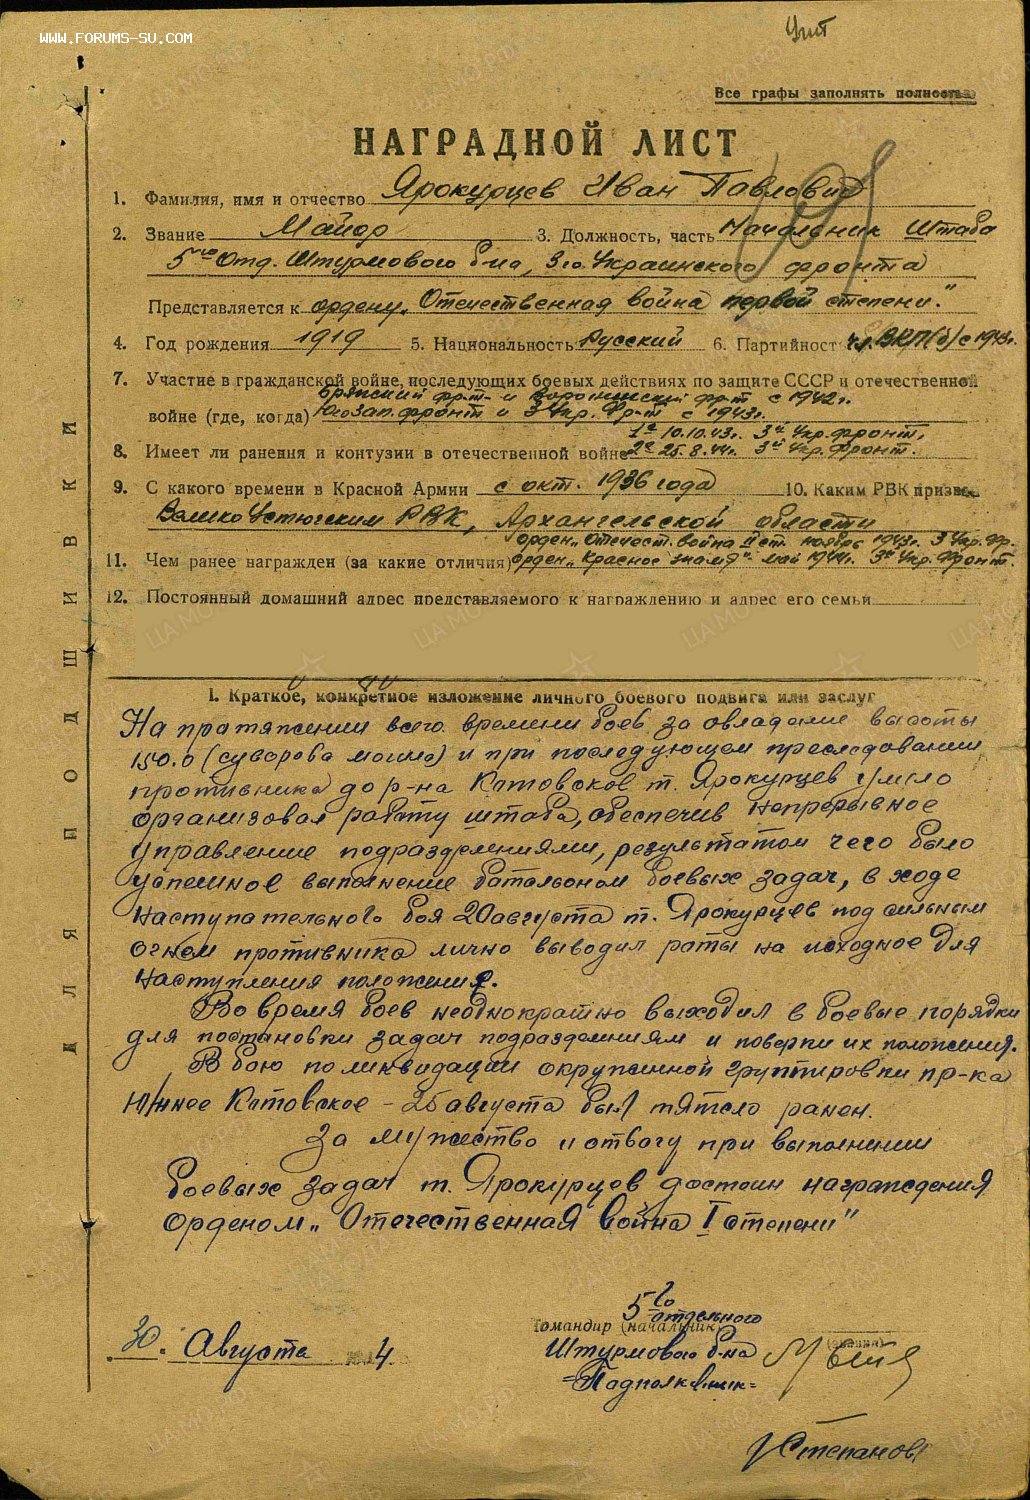 WWW.FORUMS-SU.COM
Все графы заполнять полностью
НАГРАДНОЙ ЛИСТ
1. Фамилия, имя и отчество Ярокурцев Иван Павлович
2. Звание Майор 3. Должность, часть Начальник Штаба
5го Отд. Штурмового б-на, 3го Украинского фронта
Представляется к ордену „Отечественная война первой степени."
4. Год рождения 1919 5. Национальность Русский 6. Партийност чл. ВКП(б) с 1943г.
7. Участие в гражданской войне, последующих боевых действиях по защите СССР и отечественной
Брянский фр-т и Воронежский фр-т с 1942г.
войне (где, когда) Югозап. фронт и 3 Укр. Фр-т с 1943г.
1е 10.10.43г. 3й Укр. фронт,
8. Имеет ли ранения и контузии в отечественной войне 2е 25.8.44г. 3й Укр. Фронт.
9. С какого времени в Красной Армии с окт. 1936 года 10. Каким РВК призван
Велико Устюгским РВК, Архангельской области
орден „Отечест. война II ст. ноябрь 1943г. 3 Укр. Фр.
11. Чем ранее награжден (за какие отличия) орден „Красное знамя" май 1944г. 3й Укр. Фронт.
12. Постоянный домашний адрес представляемого к награждению и адрес его семьи
ДЛЯ ПОДШИВКИ
I. Краткое, конкретное изложение личного боевого подвига или заслуг
На протяжении всего времени боев за овладение высоты
150.0 (суворова могила) и при последующем преследовании
противника до р-на Котовское т. Ярокурцев умело
организовал работу штаба, обеспечив непрерывное
управление подразделениями, результатом чего было
успешное выполнение батальоном боевых задач, в ходе
наступательного боя 20 августа т. Ярокурцев под сильным
огнем противника лично выводил роты на исходное для
наступления положения.
Во время боев неоднократно выходил в боевые порядки
для постановки задач подразделениям и поверки их положения.
В бою по ликвидации окруженной группировки пр-ка
Южнее Котовское - 25 августа был тяжело ранен.
За мужество и отвагу при выполнении
боевых задач т. Ярокурцев достоин награждения
Орденом „Отечественная война I степени"
5го отдельного
30. Августа 4 Командир (начальник)
Штурмового б-на
(звание)
=Подполковник=
Степанов